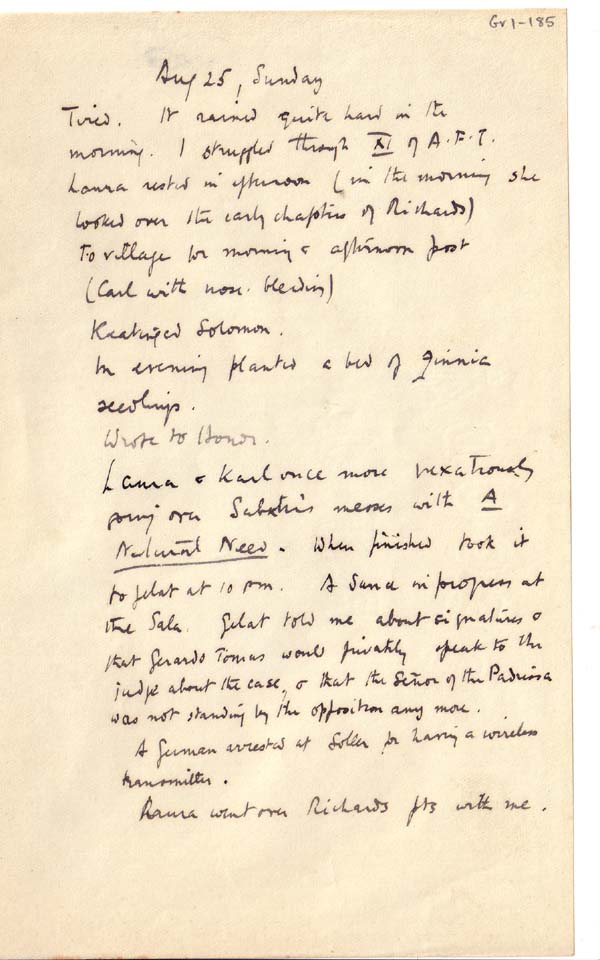 Gv1-185
Aug 25, Sunday
Tired. It rained quite hard in the
morning. I struggled through XI of A.F.T.
Laura rested in afternoon (in the morning she
looked over the early chapters of Richards)
To village for morning & afternoon post
(Carl with nose-bleeding)
Keatinged Solomon.
In evening planted a bed of Zinnia
seedlings.
Wrote to Honor.
Laura & Karl once more vexatiously
going over Sabater's messes with A
Natural Need. When finished took it
to Gelat at 10 pm. A dance in progress at
the Sala. Gelat told me about signatures &
that Gerardo Tomas would privately speak to the
judge about the case, & that the Señor of the Padrissa
was not standing by the opposition any more.
A German arrested at Soller for having a wireless
transmitter.
Laura went over Richards pts with me.